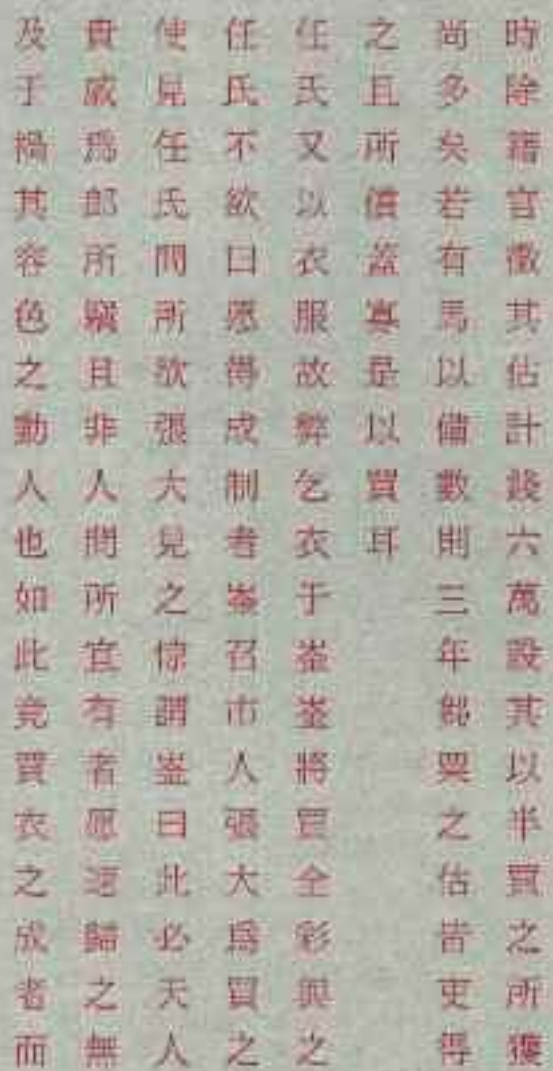 時除籍官徵其估計錢六萬設其以半買之所獲
尚多矣若有馬以備數則三年芻粟之估皆吏得
之且所償蓋寡是以買耳
任氏又以衣服故弊乞衣于崟崟將買全彩與之
任氏不欲曰愿得成制者崟召市人張大爲買之
使見任氏問所欲張大見之惊謂崟曰此必天人
貴戚爲郎所竊且非人間所宜有者愿速歸之無
及于禍其容色之動人也如此竟買衣之成者而